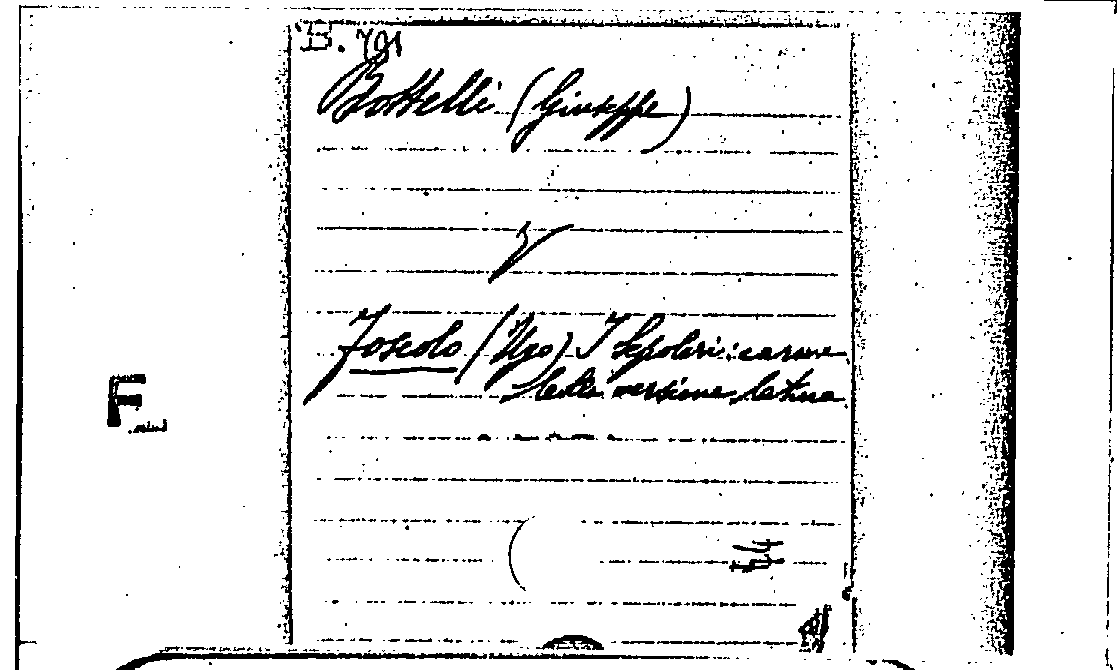 B. 791
Bottelli (Giuseppe)
V
Foscolo (Ugo) I Sepolcri: carme
versione latina